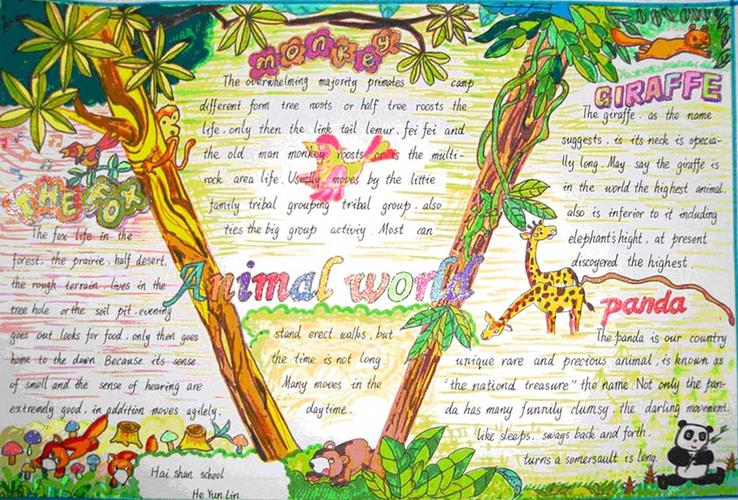 monkey
The overwhelming majority primates camp
different form tree roosts or half tree roosts the
life. only then the link tail lemur. fei fei and
the old man monkey roosts or is the multi-
rock area life. Usually moves by the little
family tribal grouping tribal group. also
ties the big group activiy. Most can
stand erect walks. but
the time is not long.
Many moves in the
daytime.
Animal world
THE FOX
The fox life in the
forest. the prairie. half desert.
the rough terrain. lives in the
tree hole or the soil pit. evening
goes out looks for food. only then goes
home to the dawn. Because its sense
of smell and the sense of hearing are
extremely good. in addition moves agilely.
Hai shan school
He Yun Lin
GIRAFFE
The giraffe. as the name
suggests. is its neck is specia-
lly long. May say the giraffe is
in the world the highest animal.
also is inferior to it including
elephant's hight. at present
discovered the highest.
panda
The panda is our country
unique rare and precious animal. is known as
"the nationd treasure" the name. Not only the pan-
da has many funnily clumsy. the darling movement.
like sleeps. sways back and forth.
turns a somersault is long.